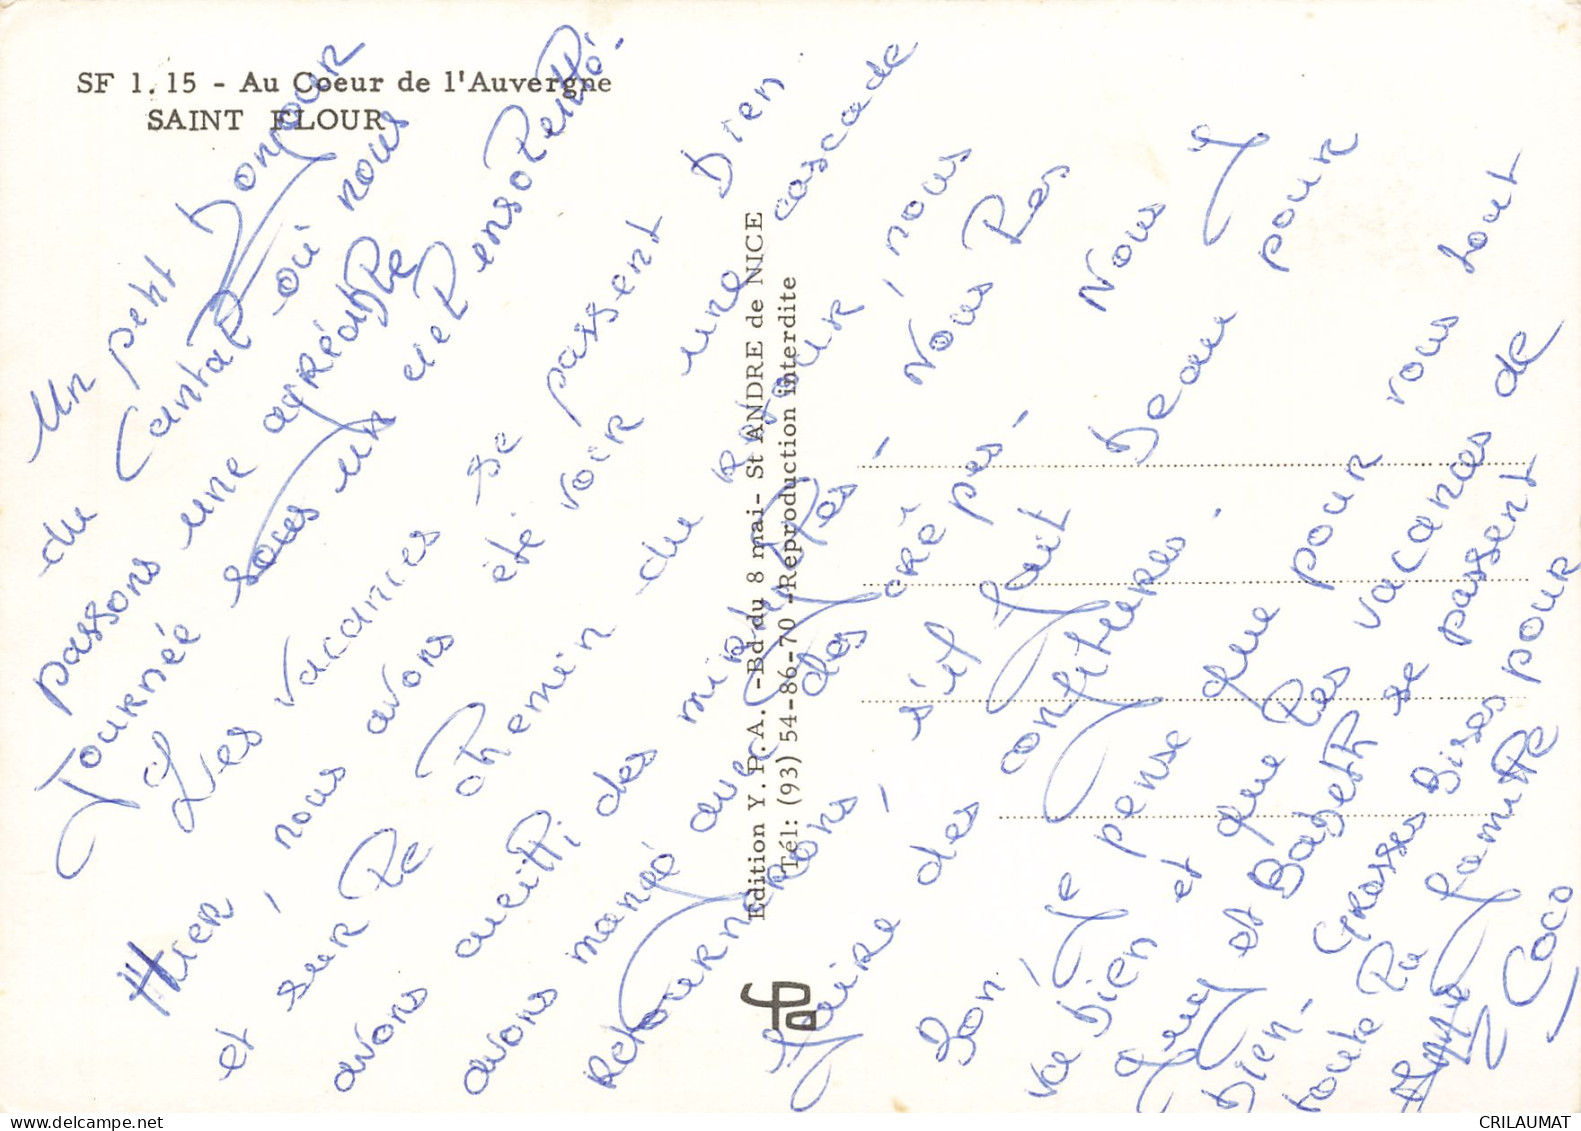 SF 1.15 - Au Coeur de l'Auvergne
SAINT FLOUR
Un petit bonjour
du Cantal où nous
passons une agréable
Journée sous un ciel ensoleillé.
Les vacances se passent bien
Hier, nous avons été voir une cascade
et sur le chemin du retour, nous
avons cueilli des mirtilles. Nous les
avons mangé avec des crêpes. Nous y
retournerons, s'il fait beau pour
faire des confitures.
Bon, Je pense que pour vous tout
va bien et que les vacances de
et Babeth se passent
bien. Grosses Bises pour
toute la famille
Coco
Edition Y.P.A. -Bd du 8 mai- St ANDRE de NICE
Tél: (93) 54-86-70 -Reproduction interdite
CRILAUMAT